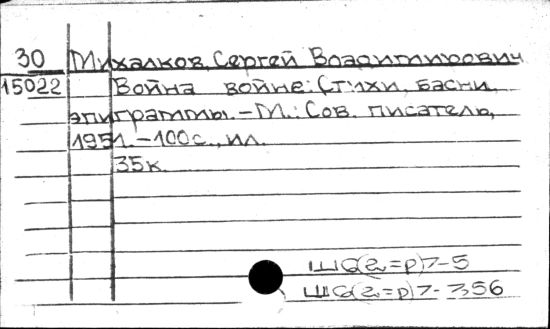 30 Михалков, Сергей Владимирович
15022 Война войне: Стихи, басни,
эпиграммы. – М.: Сов. писатель,
1951. – 100 с., ил.
35 к.
Ш6(2=р)7-5
Ш6(2=р)7-356